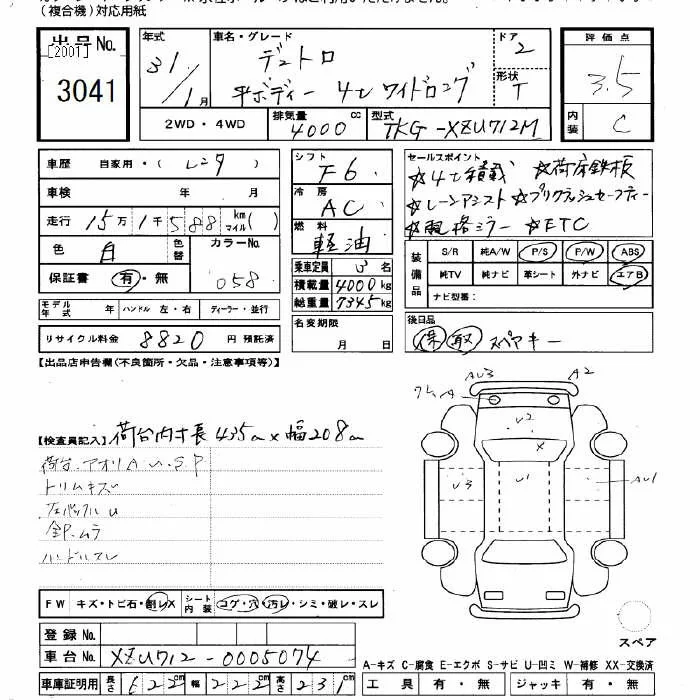 (複合機)対応用紙
出品 No. [200T] 3041
年式 31/1月
車名・グレード デュトロ 平ボディー 4t ワイドロング
ドア 2
形状 T
2WD・4WD
排気量 4000 cc
型式 TKG-XZU712M
評価点 3.5
内装 C
車歴 自家用・(レンタ)
車検 年 月
走行 15万1千588 km マイル( )
色 白 色替 カラーNo. 058
保証書 有・無
モデル年式 年 ハンドル 左・右 ディーラー・並行
リサイクル料金 8820 円 預託済
シフト F6
冷房 AC
燃料 軽油
乗車定員 3 名
積載量 4000 kg
総重量 7345 kg
名変期限 月 日
セールスポイント
☆4t積載 ☆荷床鉄板
☆レーンアシスト ☆プリクラッシュセーフティー
☆電格ミラー ☆ETC
装備品 S/R 純A/W P/S P/W ABS
純TV 純ナビ 革シート 外ナビ エアB
ナビ型番:
後日品
保 取 スペアキー
【出品店申告欄(不良箇所・欠品・注意事項等)】
【検査員記入】 荷台内寸長 435cm×幅208cm
荷台.アオリA.U.S.P
トリムキズ
左バックルU
全P.ムラ
ハンドルスレ
AU3 A2
ワレA
U2
X
U3 U1 AU1
スペア
FW キズ・トビ石・割レX シート内装 コゲ・穴・汚レ・シミ・破レ・スレ
登録 No.
車台 No. XZU712-0005074
車庫証明用 長さ 622cm 幅 222cm 高さ 231cm
A-キズ C-腐食 E-エクボ S-サビ U-凹ミ W-補修 XX-交換済
工具 有・無 ジャッキ 有・無